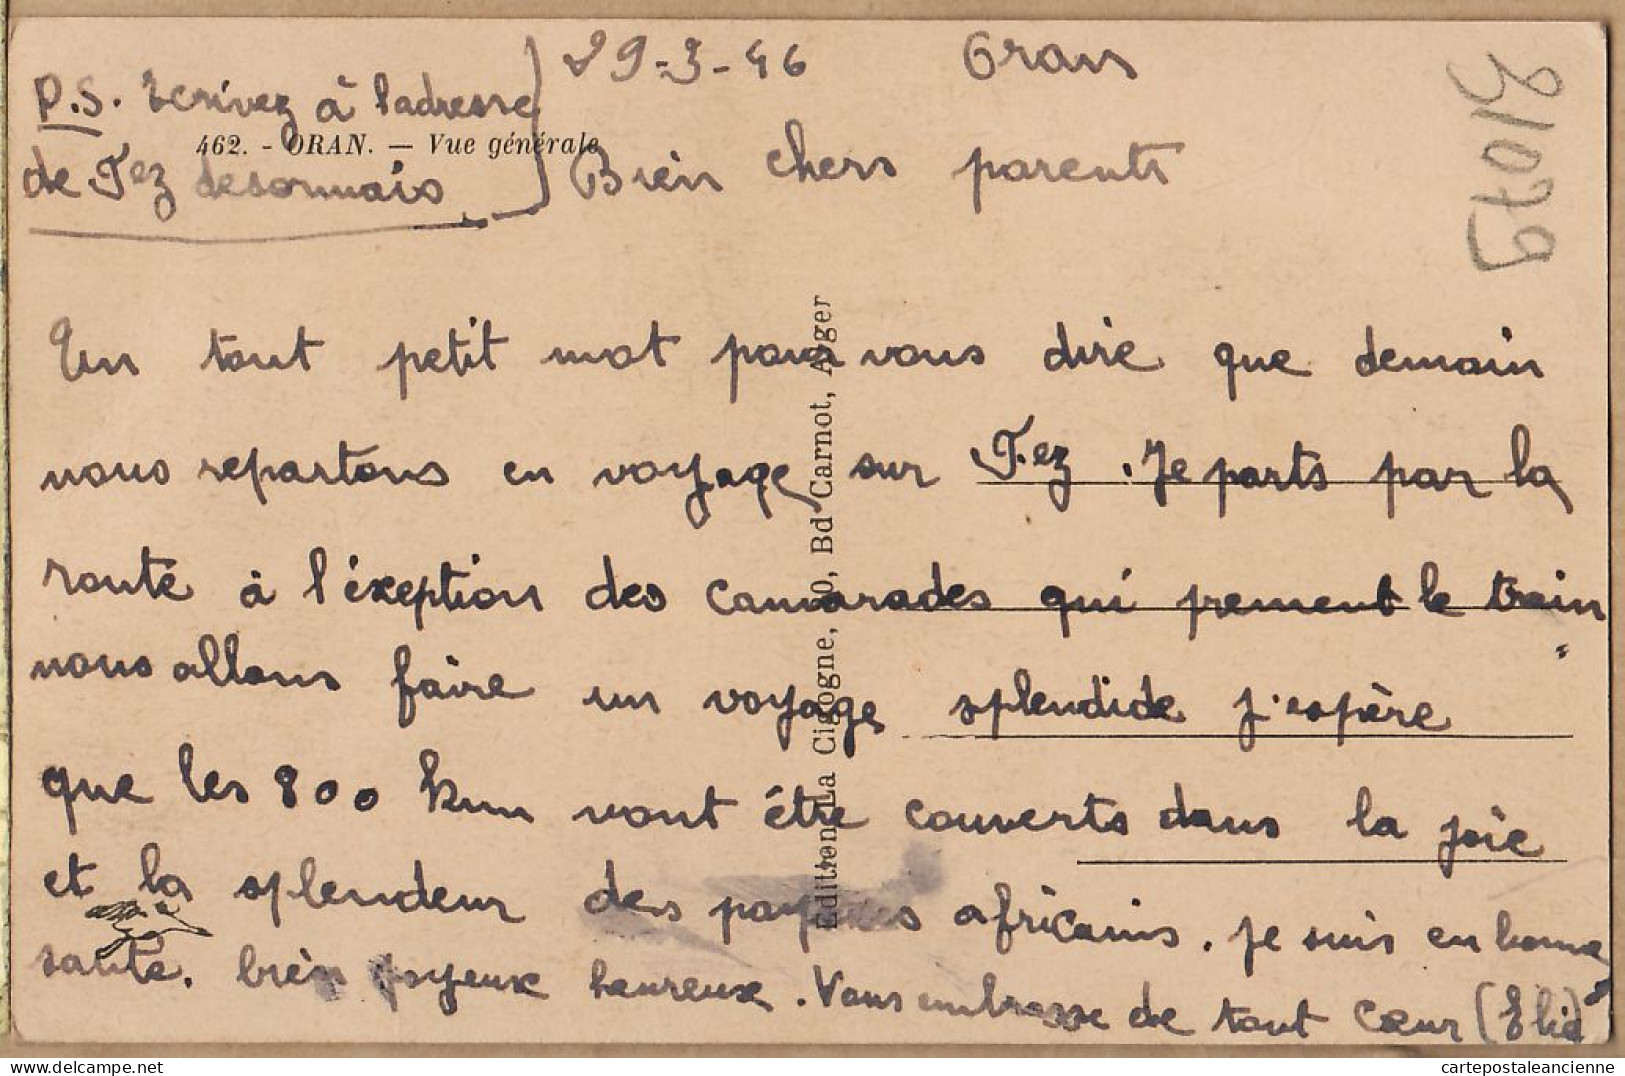 29-3-46 Oran
P.S. Ecrivez à l'adresse
de Fez desormais
462. - ORAN. — Vue générale
Bien chers parents
Un tout petit mot pour vous dire que demain
nous repartons en voyage sur Fez. Je parts par la
route à l'éxeption des camarades qui prennent le train
nous allons faire un voyage splendide j'espère
que les 800 km vont être couverts dans la joie
et la splendeur des payses africains. je suis en bonne
santé. bien joyeux heureux. Vous embrasse de tout cœur (Elie)
Edition La Cigogne, Bd Carnot, Alger
31079
delcampe.net
cartepostaleancienne